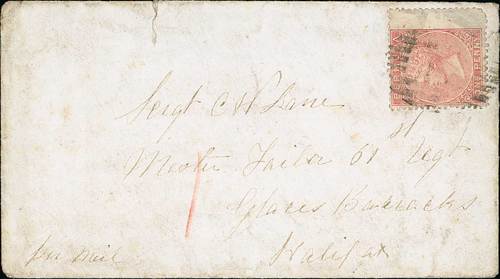 Sergt C H Lane
Master Tailor 61st Regt
Glacis Barracks
Halifax
per mail